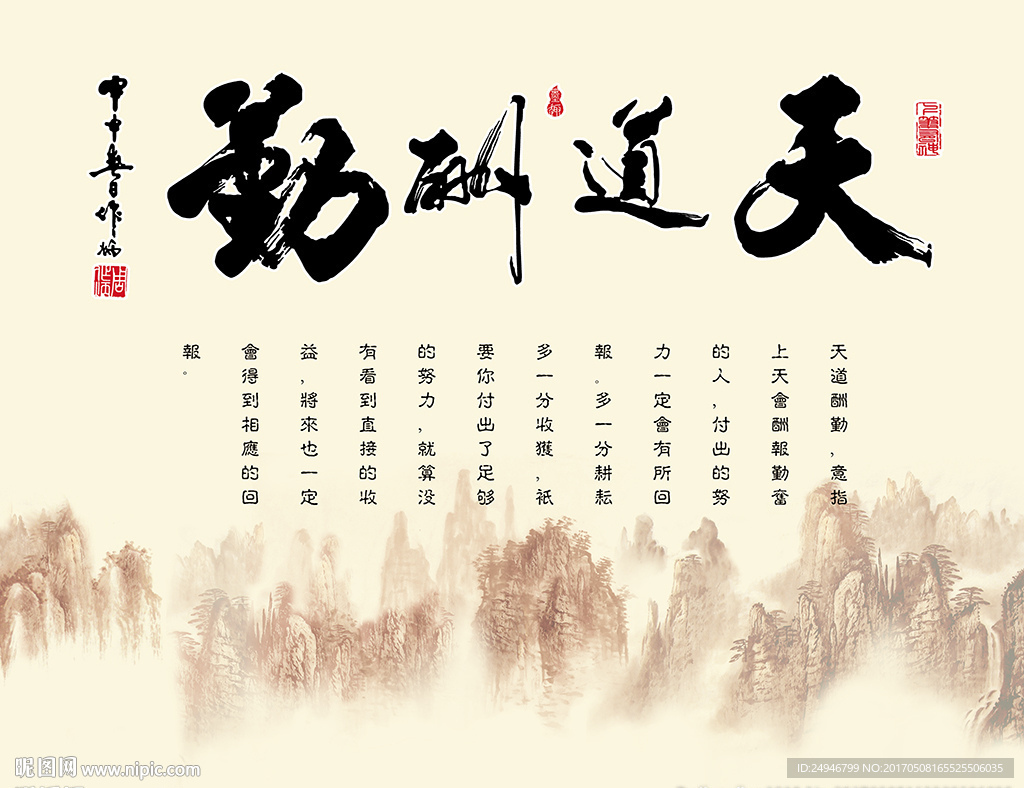 天道酬勤
天道酬勤,意指
上天會酬報勤奮
的人,付出的努
力一定會有所回
報。多一分耕耘
多一分收獲,祇
要你付出了足够
的努力,就算没
有看到直接的收
益,將來也一定
會得到相應的回
報。
昵图网 www.nipic.com
ID:24946799 NO:20170508165525506035